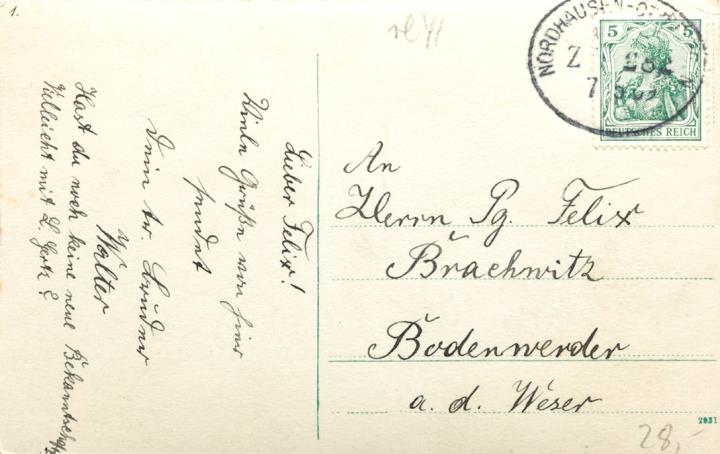 1.
Lieber Felix!
Viele Grüße von hier
sendet
Dein tr. Bruder
Walter
Hast du noch keine neue Bekanntschaft
Vielleicht mit L. Gertz
NORDHAUSEN-
Z 282
7
5 5
DEUTSCHES REICH
An
Herrn Pg. Felix
Brachwitz
Bodenwerder
a. d. Weser
2931
28,-